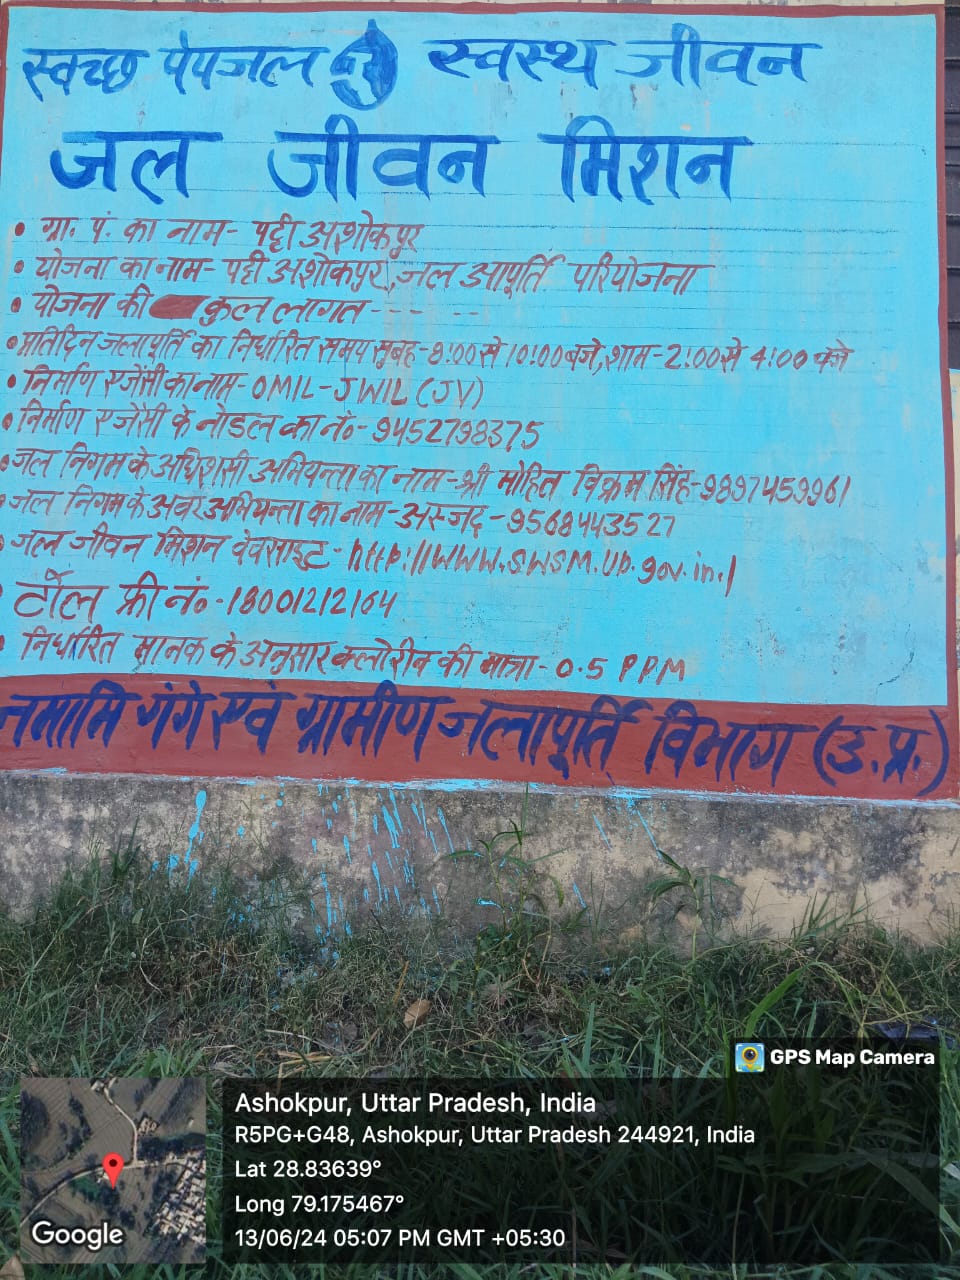 स्वच्छ पेयजल स्वस्थ जीवन
जल जीवन मिशन
• ग्रा. पं. का नाम- पट्टी अशोकपुर
• योजना का नाम- पट्टी अशोकपुर, जल आपूर्ति परियोजना
• योजना की कुल लागत- -- --
• प्रतिदिन जलापूर्ति का निर्धारित समय सुबह-8:00से 10:00बजे,शाम-2:00से 4:00 बजे
• निर्माण एजेंसी का नाम- OMIL-JWIL (JV)
• निर्माण एजेंसी के नोडल का नं०- 9452798375
• जल निगम के अधिशासी अभियन्ता का नाम-श्री मोहित विक्रम सिंह-9897459961
• जल निगम के अवर अभियन्ता का नाम-अस्जद-9568443527
• जल जीवन मिशन वेवसाइट-http://www.SWSM.UP.gov.in./
• टोल फ्री नं०-18001212164
• निर्धारित मानक के अनुसार क्लोरीन की मात्रा- 0.5 PPM
नमामि गंगे एवं ग्रामीण जलापूर्ति विभाग (उ.प्र.)
GPS Map Camera
Ashokpur, Uttar Pradesh, India
R5PG+G48, Ashokpur, Uttar Pradesh 244921, India
Lat 28.83639°
Long 79.175467°
13/06/24 05:07 PM GMT +05:30
Google